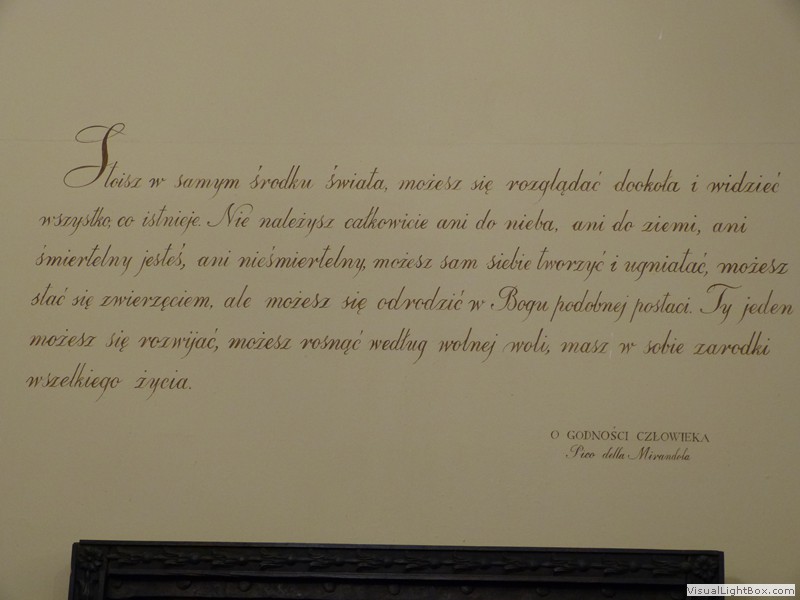 Stoisz w samym środku świata, możesz się rozglądać dookoła i widzieć
wszystko, co istnieje. Nie należysz całkowicie ani do nieba, ani do ziemi, ani
śmiertelny jesteś, ani nieśmiertelny, możesz sam siebie tworzyć i ugniatać, możesz
stać się zwierzęciem, ale możesz się odrodzić w Bogu podobnej postaci. Ty jeden
możesz się rozwijać, możesz rosnąć według wolnej woli, masz w sobie zarodki
wszelkiego życia.
O GODNOŚCI CZŁOWIEKA
Pico della Mirandola
VisualLightBox.com